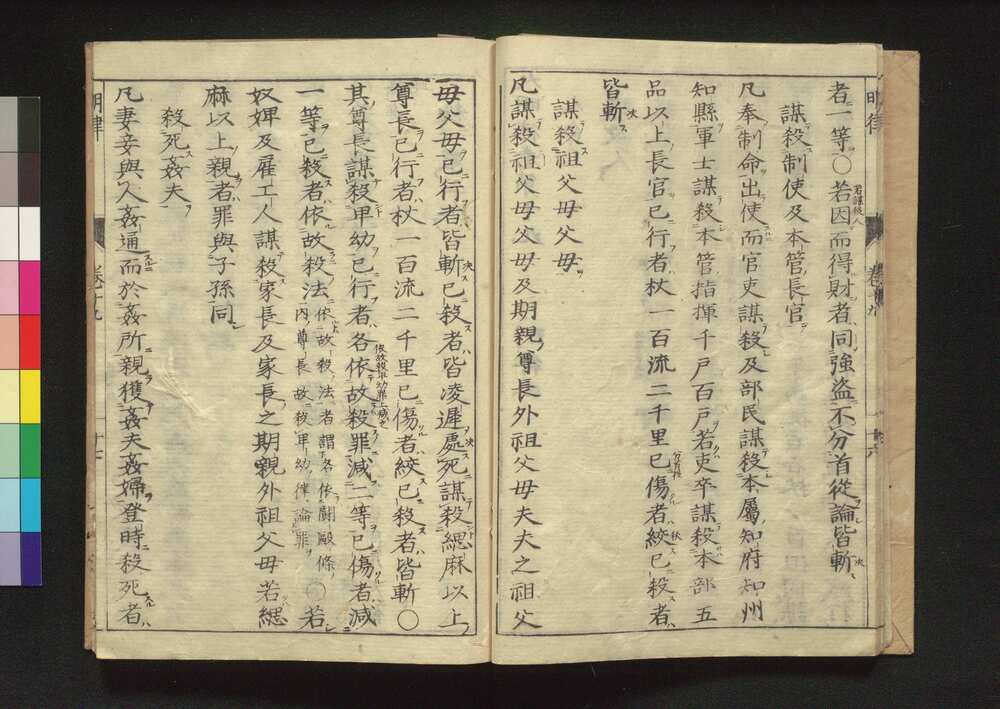 者一等○若因而得財者同強盗不分首從論皆斬
謀殺制使及本管長官
凡奉制命出使而官吏謀殺及部民謀殺本屬知府知州
知縣軍士謀殺本管指揮千戸百戸若吏卒謀殺本部五
品以上長官已行者杖一百流二千里已傷者絞已殺者
皆斬
謀殺祖父母父母
凡謀殺祖父母父母及期親尊長外祖父母夫夫之祖父
母父母已行者皆斬已殺者皆凌遲處死謀殺緦麻以上
尊長已行者杖一百流二千里已傷者絞已殺者皆斬○
其尊長謀殺卑幼已行者各依故殺罪減二等已傷者減
一等已殺者依故殺法依故殺法者謂各依闘毆條内尊長故殺卑幼律論罪○若
奴婢及雇工人謀殺家長及家長之期親外祖父母若緦
麻以上親者罪與子孫同
殺死姦夫
凡妻妾與人姦通而於姦所親獲姦夫姦婦登時殺死者
明律
卷十九
十七
明律